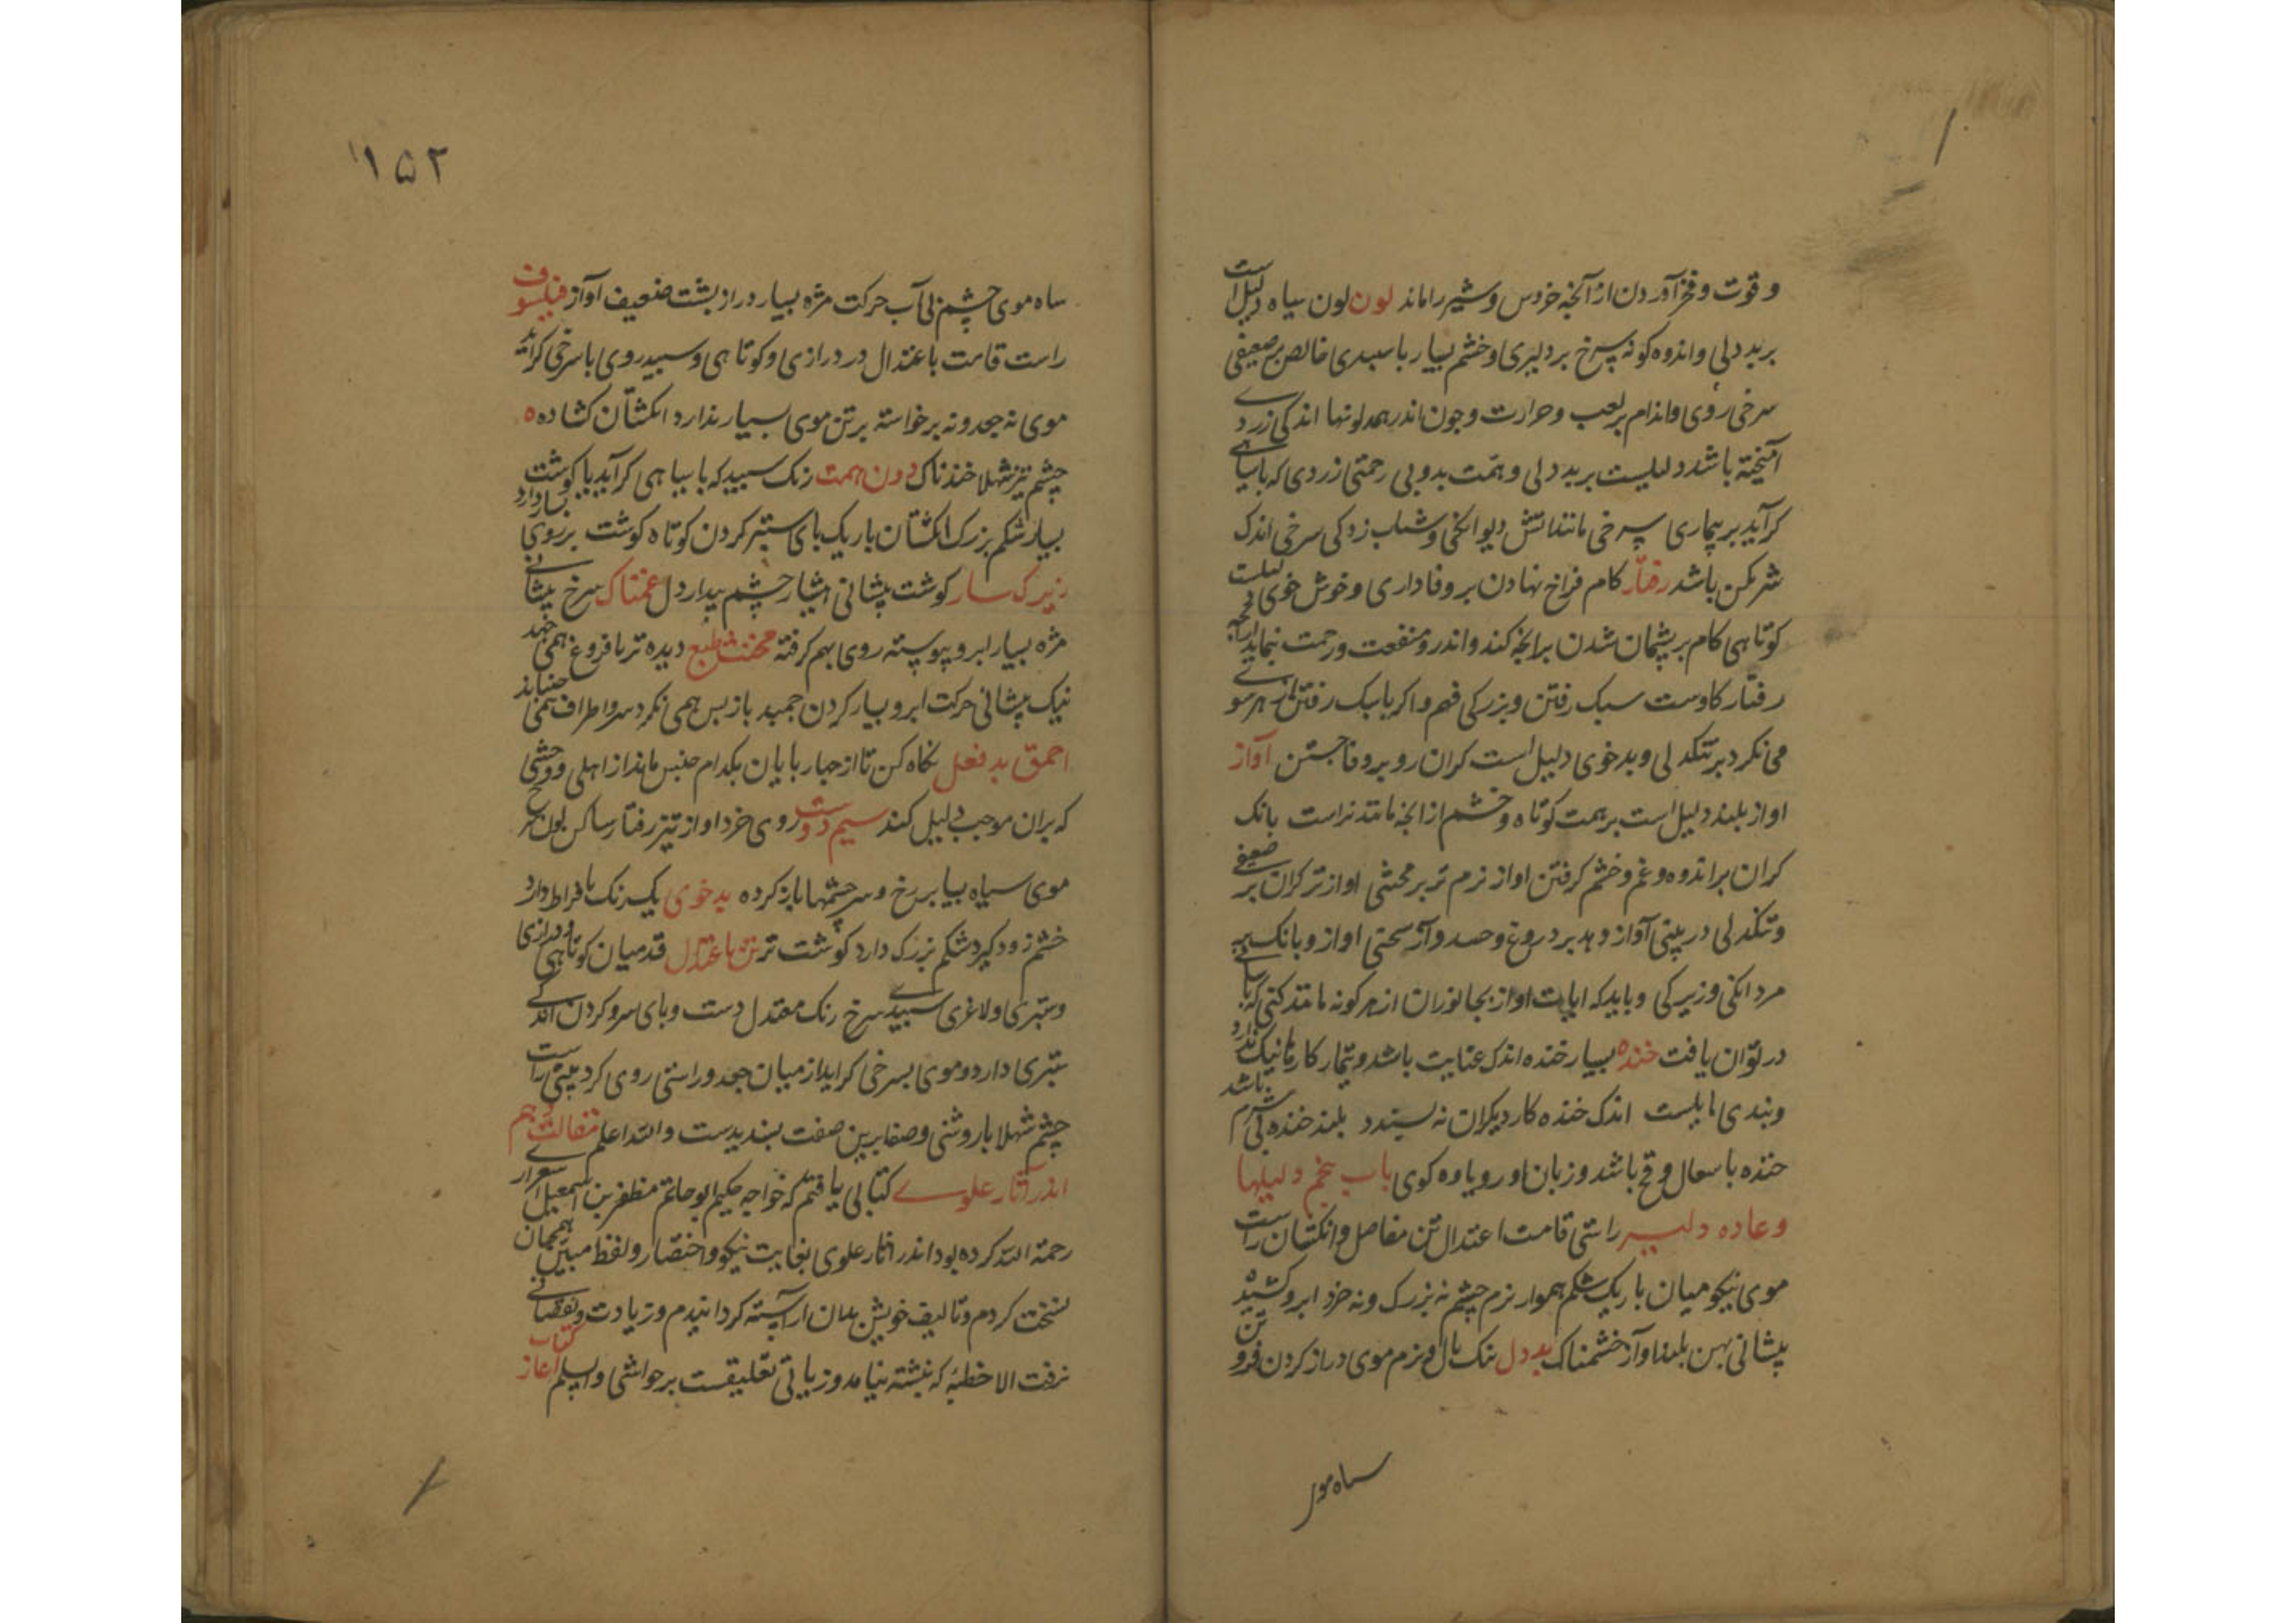 و قوت و فخر آوردن از آنجه خروس و شیر را ماند لون لون سیاه دلیل است
بر بد دلی و اندوه کونه سرخ بر دلیری و خشم بسیار با سبیدی خالص بر ضعیفی
سرخی روی و اندام بر لعب و حرارت و جون اندر همه لونها اندکی زردے
آمیخته باشد دلیلست بر بد دلی و همت بد و بی رحمتی زردی که با سیاهے
کرآید بر بیماری سرخی مانند اتش دیوانکی و شتاب زدکی سرخی اندک
شرمکن باشد رفتار کام فراخ نهادن بر وفاداری و خوش خوی دلیلست
کوتاهی کام بر پشیمان شدن برانجه کند و اندرو منفعت و رحمت نماید
رفتار کاوست سبک رفتن و بزرکی فهم و اکر باسبک رفتن از هر سو
می نکرد بر تنکدلی و بدخوی دلیل است کران رو بر وفا جستن آواز
اواز بلند دلیل است بر همت کوتاه و خشم از انجه مانند نراست بانک
کران بر اندوه و غم و خشم کرفتن اواز نرم تر بر مخنثی اواز تر کران بر ضعیفے
و تنکدلی در بینی آواز دهد بر دروغ و حسد و آز سختی اواز و بانک بر
مردانکی و زیرکی و باید که ابیات اواز بجانوران از هر کونه مانند کنی که
در توان یافت خنده بسیار خنده اندک عنایت باشد و تیمار کارها نیک ندارد
و بندی اندک خنده کار دیکران نه بسندد بلند خنده بی شرم باشد
خنده با سعال وقح باشد و زبان اور و یاوه کوی باب پنجم دلیلها
و عاده دلیر راستی قامت اعتدال تن مفاصل و انکشتان راست
موی نیکو میان باریک شکم هموار نرم چشم نه بزرک و نه خرد ابرو کشیده
پیشانی پهن بلند اواز خشمناک بد دل تنک بال و نرم موی دراز کردن فرو تن
سیاه موی
۱۵۲
سیاه موی چشم بی آب حرکت مژه بسیار دراز بشت ضعیف آواز فیلسوف
راست قامت باعتدال در درازی و کوتاهی و سبید روی با سرخی کراید
موی نه جعد و نه برخواسته بر تن موی بسیار ندارد انکشتان کشاده
چشم تیز شهلا خندناک دون همت رنک سبید که با سیاهی کرآید با کوشت
بسیار شکم بزرک انکشتان باریک بای ستبر کردن کوتاه کوشت بر روی بسیار دارد
زیرک سار کوشت پیشانی چشم بیدار دل غمناک سرخ پیشانے
مژه بسیار ابرو پیوسته روی بهم کرفته مخنث طبع دیده تر با فروغ همی جهد
نیک پیشانی حرکت ابرو بسیار کردن جمید باز بس همی نکرد سر و اطراف همی جنباند
احمق بد فعل نکاه کن تا از جهاربایان بکدام جنس ماند از اهلی و وحشی
که بران موجب دلیل کند سیم دوست روی خرد اواز تیز رفتار ساکن لون سرخ
موی سیاه بسیار بر رخ و سر چشمها باز کرده بد خوی یک رنک بافراط دارد
خشم زود کیرد شکم بزرک دارد کوشت تر تن با اعتدال قد میان کوتاهی و درازی
و ستبری و لاغری سبیدے سرخ رنک معتدل دست و بای سر و کردن اندکے
ستبری دارد و موی بسرخی کراید از میان جعد و راستی روی کرد بینی راست
چشم شهلا با روشنی و صفا برین صفت بسندیدست والله اعلم مقالت دهم
اندر آثار علوے کتابی یافتم که خواجه حکیم ابو حاتم مظفر بن اسمعیل اسفزاری
رحمة الله کرده بود اندر اثار علوی بغایت نیکو و اختصار و لفظ مبین همچنان
نسخت کردم و تالیف خویش بدان آراسته کردانیدم و زیادت و نقصانے
نرفت الا خطبه که نبشته نیامد و زیاتی تعلیقست بر حواشی والسلم اغاز کتاب